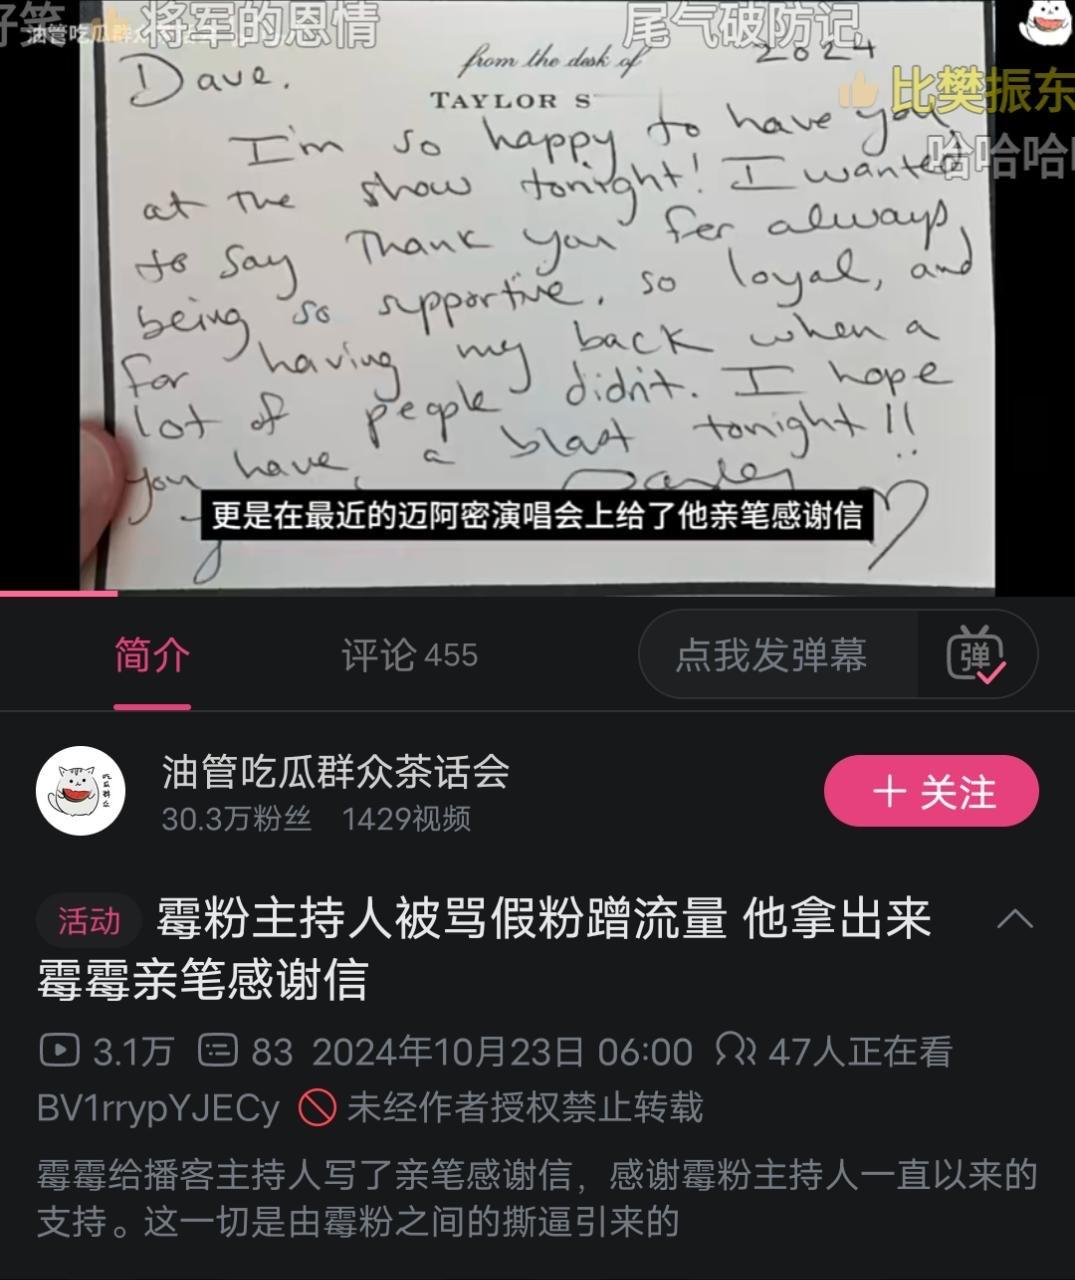 好笑
将军的恩情
尾气破防记
油管吃瓜群众
比樊振东
哈哈哈哈
from the desk of
TAYLOR S
2024
Dave.
I'm so happy to have you
at the show tonight! I wanted
to say Thank you for always
being so supportive, so loyal, and
for having my back when a
lot of people didn't. I hope
you have a blast tonight!!
更是在最近的迈阿密演唱会上给了他亲笔感谢信
简介
评论 455
点我发弹幕
弹
吃瓜群众
油管吃瓜群众茶话会
30.3万粉丝 1429视频
+ 关注
活动 霉粉主持人被骂假粉蹭流量 他拿出来
霉霉亲笔感谢信
3.1万 83 2024年10月23日 06:00 47人正在看
BV1rrypYJECy 未经作者授权禁止转载
霉霉给播客主持人写了亲笔感谢信，感谢霉粉主持人一直以来的
支持。这一切是由霉粉之间的撕逼引来的